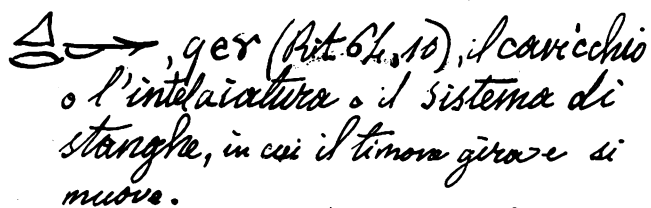 , qer (Rit. 64, 10), il cavicchio
o l'intelaiatura o il sistema di
stanghe, in cui il timone gira e si
muove.